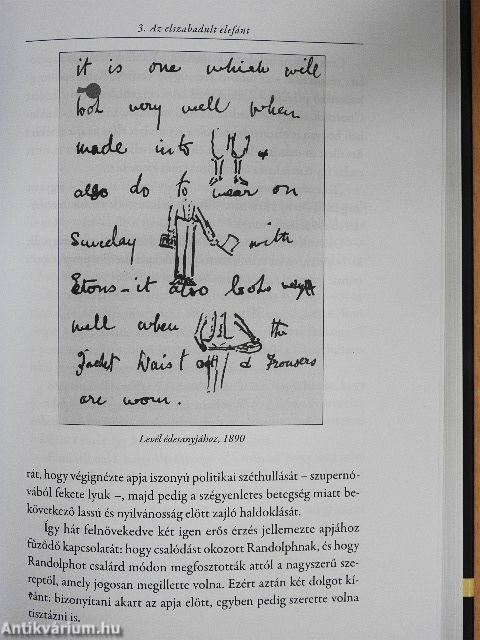 3. Az elszabadult elefánt
it is one which will
look very well when
made into &
also do to wear on
Sunday with
Etons – it also looks very
well when the
Jacket Waist & Trousers
are worn.
Levél édesanyjához, 1890
rát, hogy végignézte apja iszonyú politikai széthullását – szupernó-
vából fekete lyuk –, majd pedig a szégyenletes betegség miatt be-
következő lassú és nyilvánosság előtt zajló haldoklását.
Így hát felnövekedve két igen erős érzés jellemezte apjához
fűződő kapcsolatát: hogy csalódást okozott Randolphnak, és hogy
Randolphot csalárd módon megfosztották attól a nagyszerű sze-
reptől, amely jogosan megillette volna. Ezért aztán két dolgot kí-
vánt: bizonyítani akart az apja előtt, egyben pedig szerette volna
tisztázni is.
Antikvárium.hu